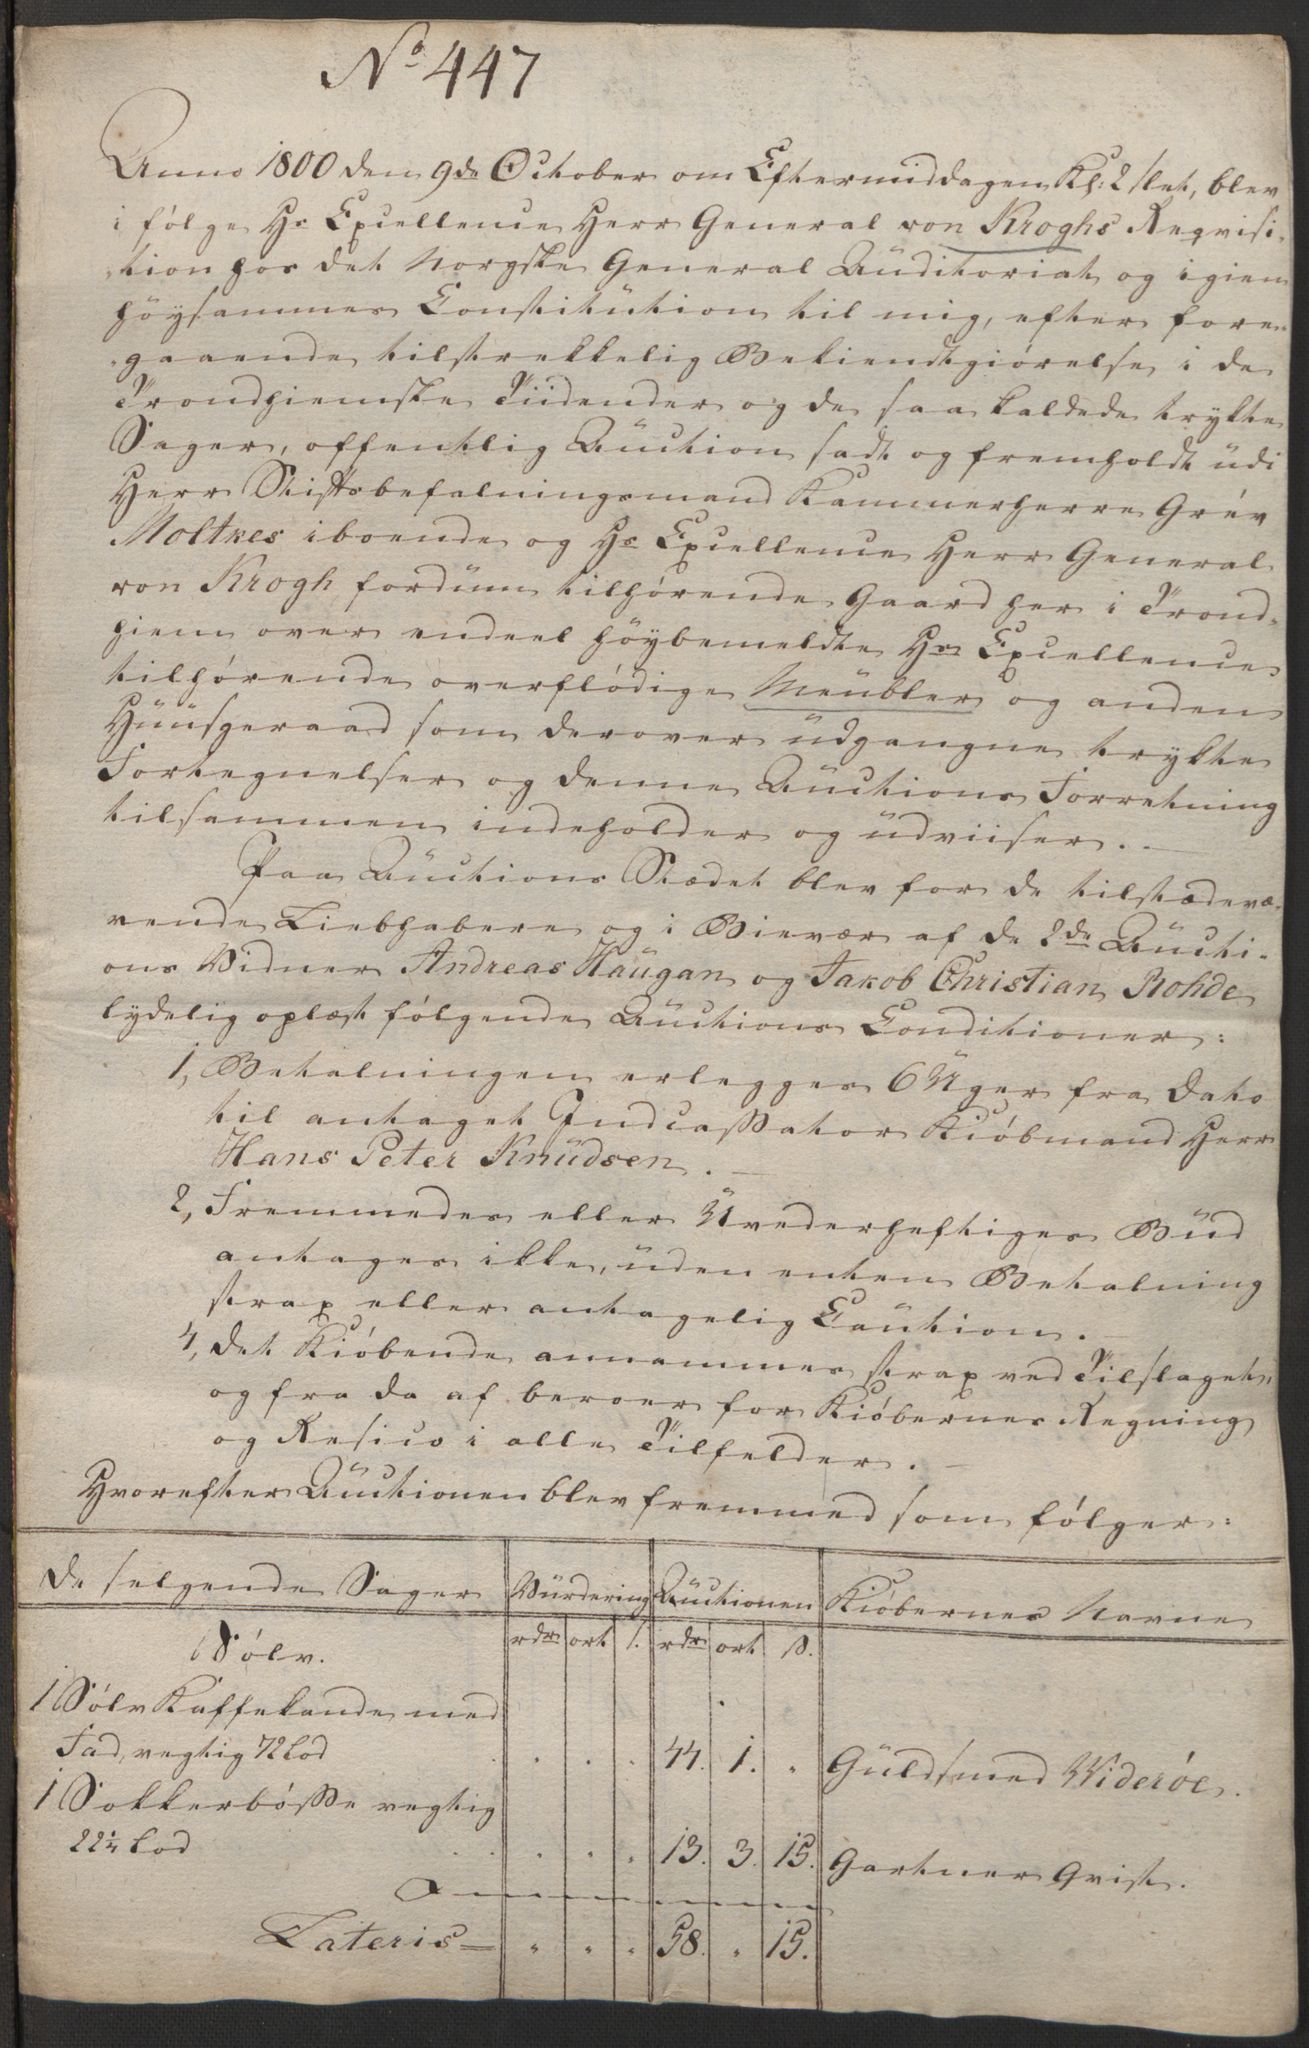 No 447
Anno 1800 den 9de October om Eftermiddagen Kl: 2 slet, blev
i følge Hs Excellence Herr General von Kroghs Reqvisi-
tion hos det Norgske General Auditoriat og igien
høysammes Constitution til mig, efter fore-
gaaende tilstrekkelig Bekiendtgiørelse i de
Trondhiemske Tiidender og de saa kaldede trykte
Sager, offentlig Auction sadt og fremholdt udi
Herr Stiftsbefalningsmand Kammerherre Grév
Moltkes iboende og Hs Excellence Herr General
von Krogh fordum tilhørende Gaard her i Trond-
hiem over endeel høybemeldte Hrs Excellence
tilhørende overflødige Meubler og anden
Huusgeraad som derover udgangne trykte
Fortegnelser og denne Auctions Forretning
tilsammen indeholder og udviiser.
Paa Auctions Stædet blev for de tilstædevæ-
rende Liebhabere og i Bievær af de 2de Aucti-
ons Vidner Andreas Haugan og Jakob Christian Rohde
lydelig oplæst følgende Auctions Conditioner:
1, Betalningen erlegges 6 Uger fra Dato
til antaget Indcassator Kiøbmand Herr
Hans Peter Knudsen.
2, Fremmedes eller Uvederheftiges Bud
antages ikke, uden enten Betalning
strax eller antagelig Caution.
4, Det Kiøbende annammes strax ved Tilslaget,
og fra da af beroer for Kiøbernes Regning
og Resico i alle Tilfelder.
Hvorefter Auctionen blev fremmed som følger:
De selgende Sager Vurdering Auctionen Kiøbernes Navne
Sølv. rdr ort s. rdr ort s.
1 Sølv Kaffekande med
Fad, vegtig 72 Lod 44. 1. " Guldsmed Widerøe.
1 Sokkerbøsse vegtig
22¼ Lod 13. 3. 15. Gartner Qvist.
Lateris " " " 58. " 15.